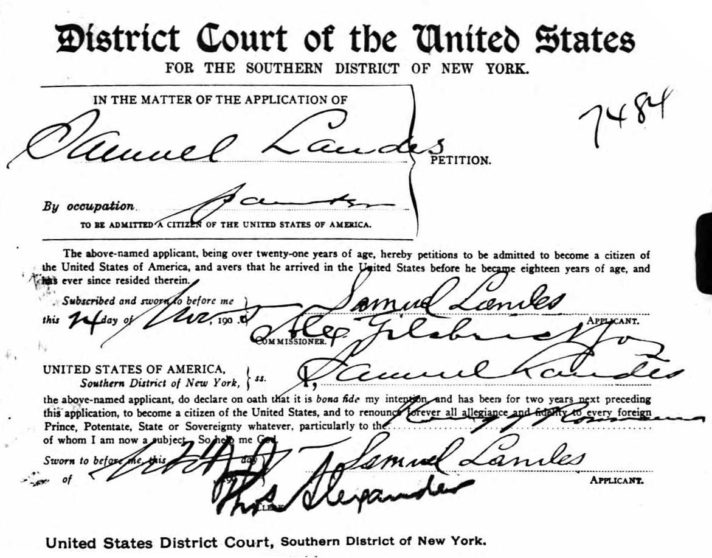 District Court of the United States
FOR THE SOUTHERN DISTRICT OF NEW YORK.
7484
IN THE MATTER OF THE APPLICATION OF
Samuel Landes
PETITION.
By occupation painter
TO BE ADMITTED A CITIZEN OF THE UNITED STATES OF AMERICA.
The above-named applicant, being over twenty-one years of age, hereby petitions to be admitted to become a citizen of
the United States of America, and avers that he arrived in the United States before he became eighteen years of age, and
has ever since resided therein.
Subscribed and sworn to before me Samuel Landes
this 24 day of 190 APPLICANT.
Alex Gilchrist Jr
COMMISSIONER.
UNITED STATES OF AMERICA,
Southern District of New York, ss. I, Samuel Landes
the above-named applicant, do declare on oath that it is bona fide my intention, and has been for two years next preceding
this application, to become a citizen of the United States, and to renounce forever all allegiance and fidelity to every foreign
Prince, Potentate, State or Sovereignty whatever, particularly to the King of Roumania
of whom I am now a subject. So help me God.
Sworn to before me, this day Samuel Landes
of 190 APPLICANT.
Thos Alexander
CLERK.
United States District Court, Southern District of New York.